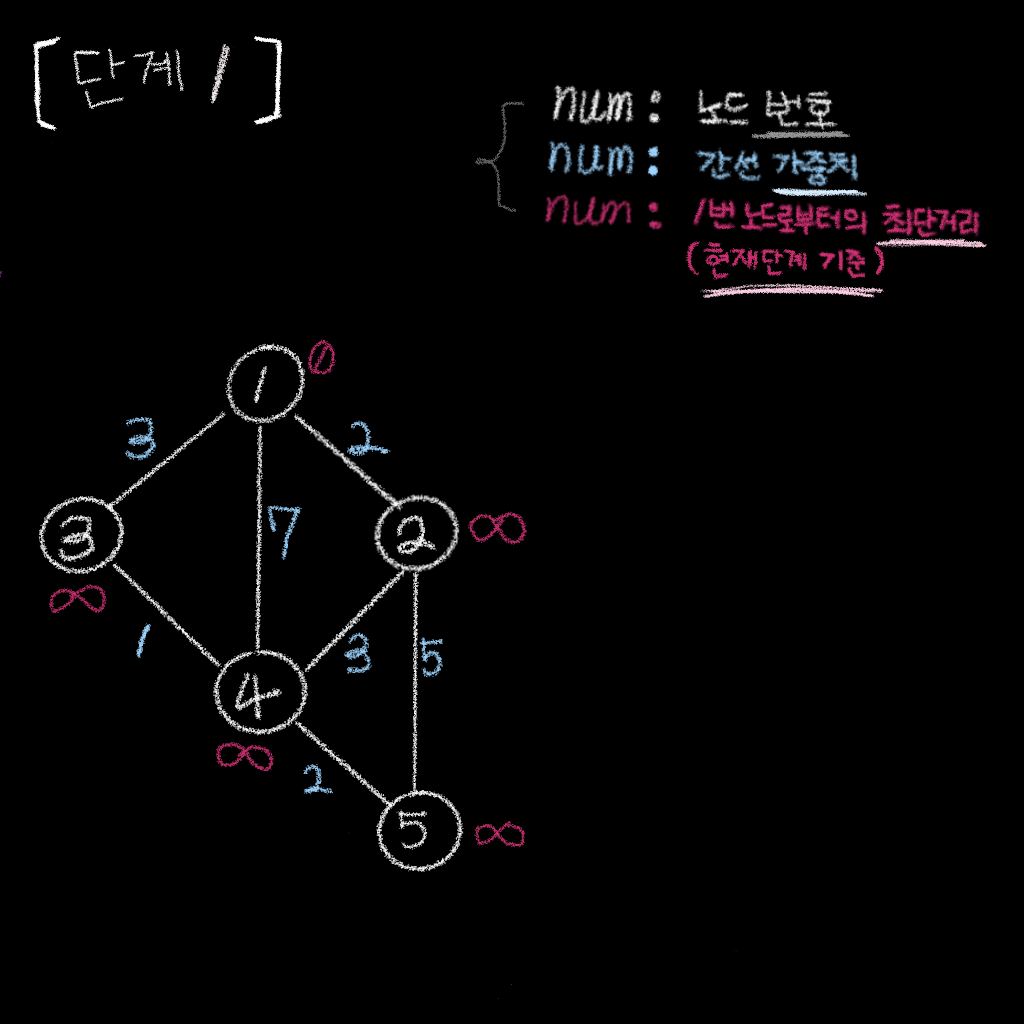 [단계 1]
num : 노드 번호
num : 간선 가중치
num : 1번 노드로부터의 최단거리
(현재단계 기준)
1 0
3 2
3 7 2 ∞
∞
1 3 5
4
∞ 2
5 ∞